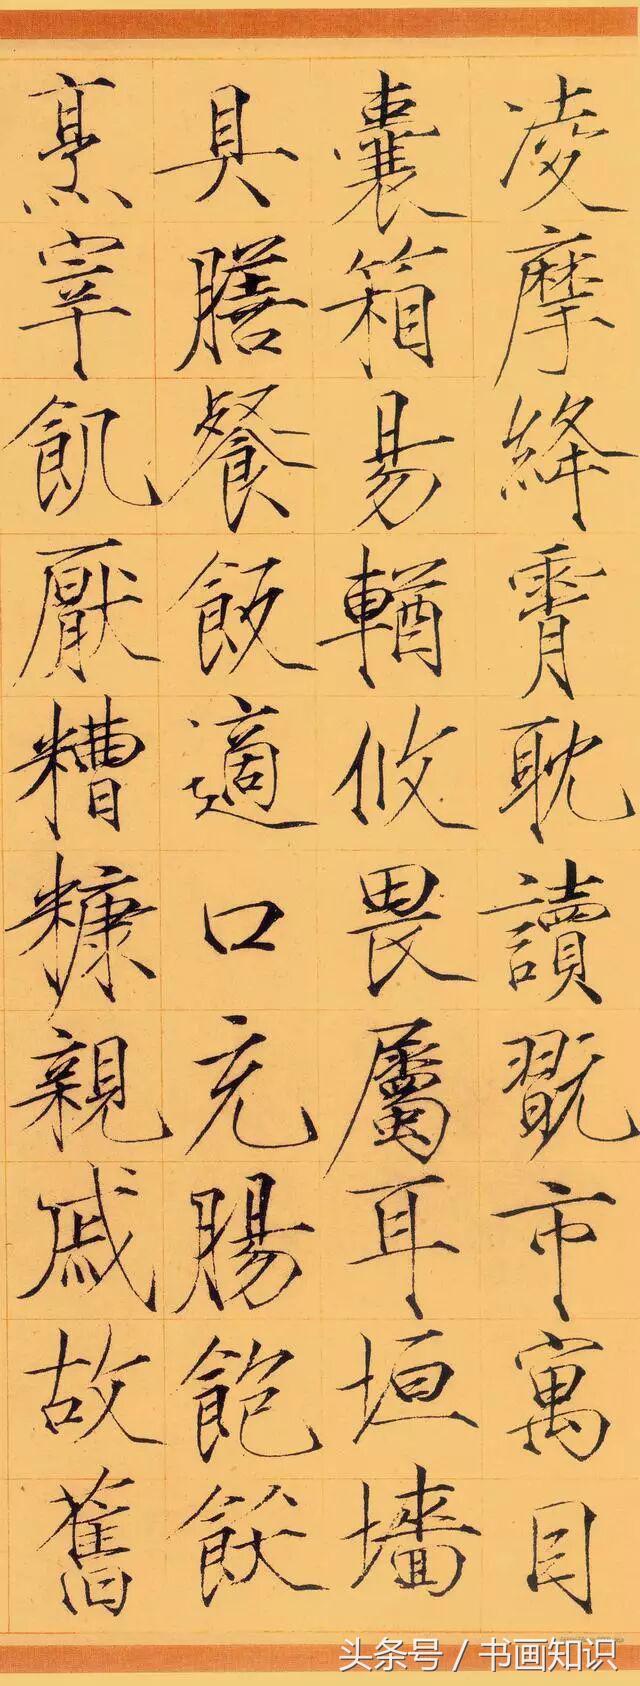 凌摩絳霄耽讀翫市寓目
囊箱易輶攸畏屬耳垣墻
具膳餐飯適口充腸飽飫
烹宰飢厭糟糠親戚故舊
头条号 / 书画知识